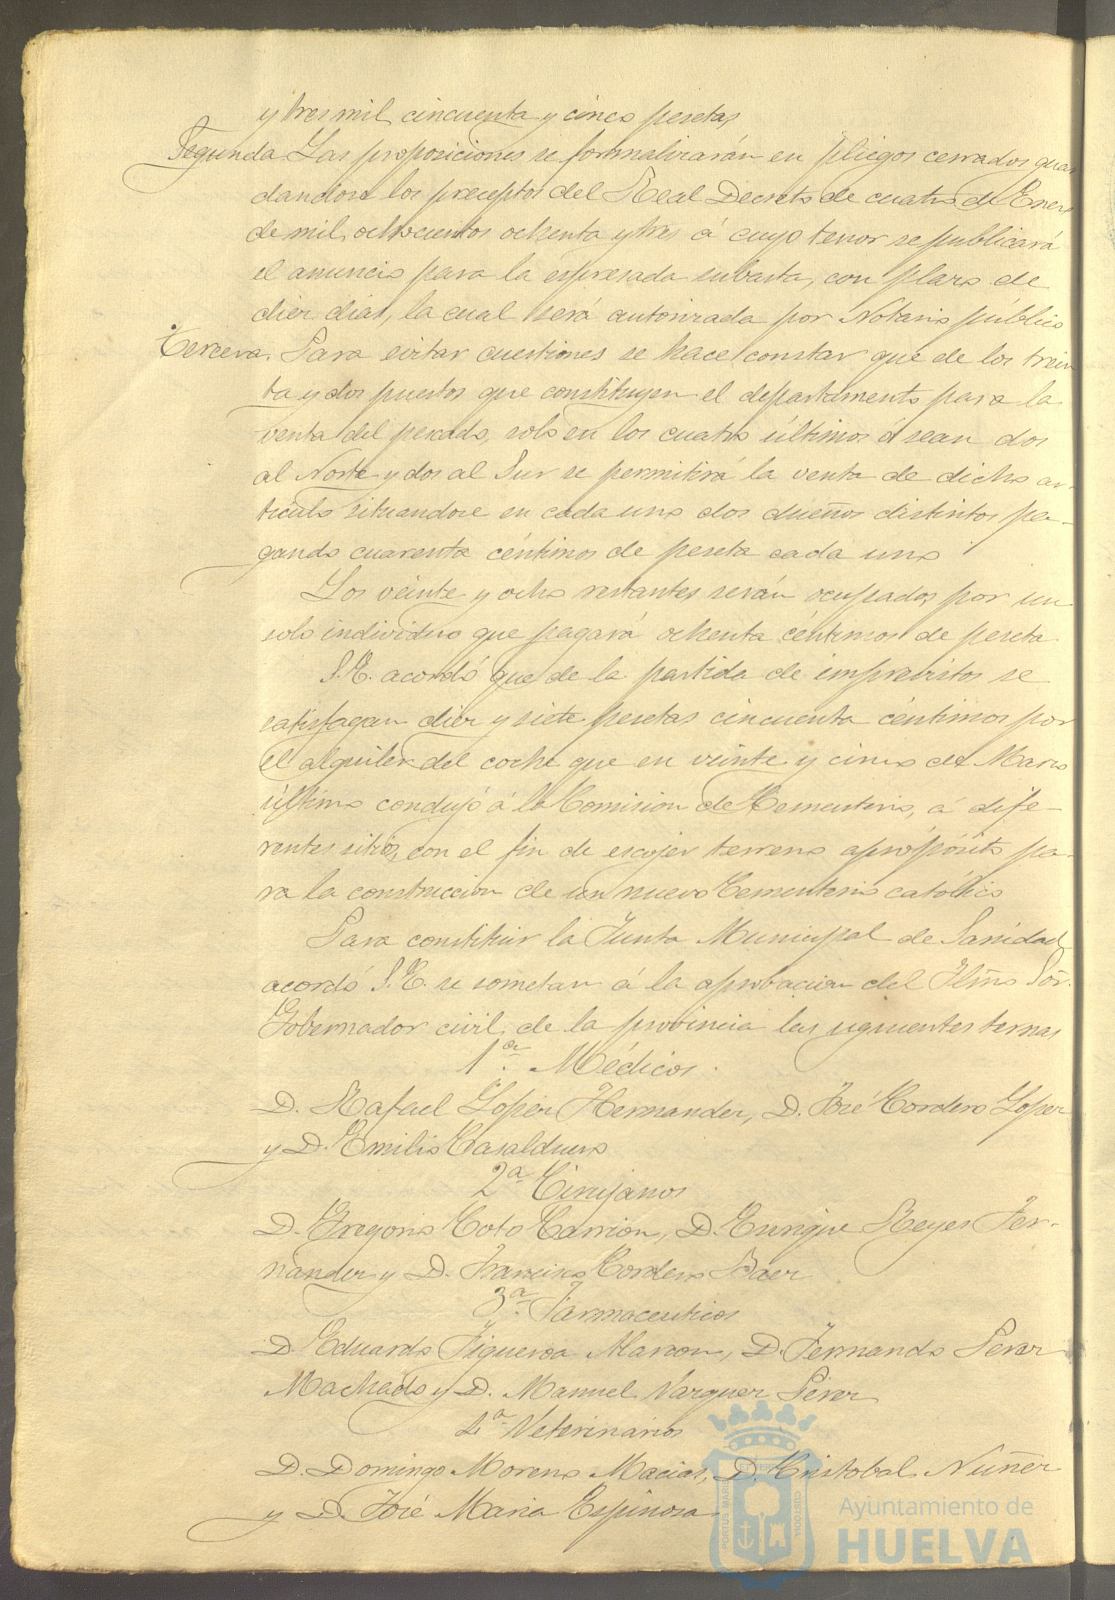 y tres mil cincuenta y cinco pesetas
Segunda Las proposiciones se formalizarán en pliegos cerrados guar
dandose los preceptos del Real Decreto de cuatro de Enero
de mil ochocientos ochenta y tres á cuyo tenor se publicará
el anuncio para la espresada subasta, con plazo de
diez dias, la cual será autorizada por Notario público
Tercera. Para evitar cuestiones se hace constar que de los trein
ta y dos puestos que constituyen el departamento para la
venta del pescado, solo en los cuatro últimos ó sean dos
al Norte y dos al Sur se permitirá la venta de dicho ar-
ticulo situandose en cada uno dos dueños distintos pa-
gando cuarenta céntimos de peseta cada uno
Los veinte y ocho restantes serán ocupados por un
solo individuo que pagará ochenta céntimos de peseta
S.E. acordó que de la partida de imprevistos se
satisfagan diez y siete pesetas cincuenta céntimos por
el alquiler del coche que en veinte y cinco de Marzo
último condujó á la Comision de Cementerio, á dife-
rentes sitios, con el fin de escojer terreno apropósito pa-
ra la construccion de un nuevo Cementerio católico
Para constituir la Junta Municipal de Sanidad
acordó S.E. se sometan á la aprobacion del Ilmo Sor.
Gobernador civil de la provincia las siguientes ternas
1ª. Médicos.
D. Rafael Lopez Hernandez, D. José Cordero Lopez
y D. Emilio Casalduero
2ª Cirujanos
D. Gregorio Coto Carrion, D. Enrique Reyes Fer-
nandez y D. Francisco Cordero Baez
3ª. Farmaceuticos
D Eduardo Figueroa Alarcon, D. Fernando Perez
Machado y D. Manuel Vazquez Perez
4ª Veterinarios
D. Domingo Moreno Macias, D. Cristobal Nuñez
y D. José Maria Espinosa
Ayuntamiento de
HUELVA
PORTUS MARIS
CUSTODIA